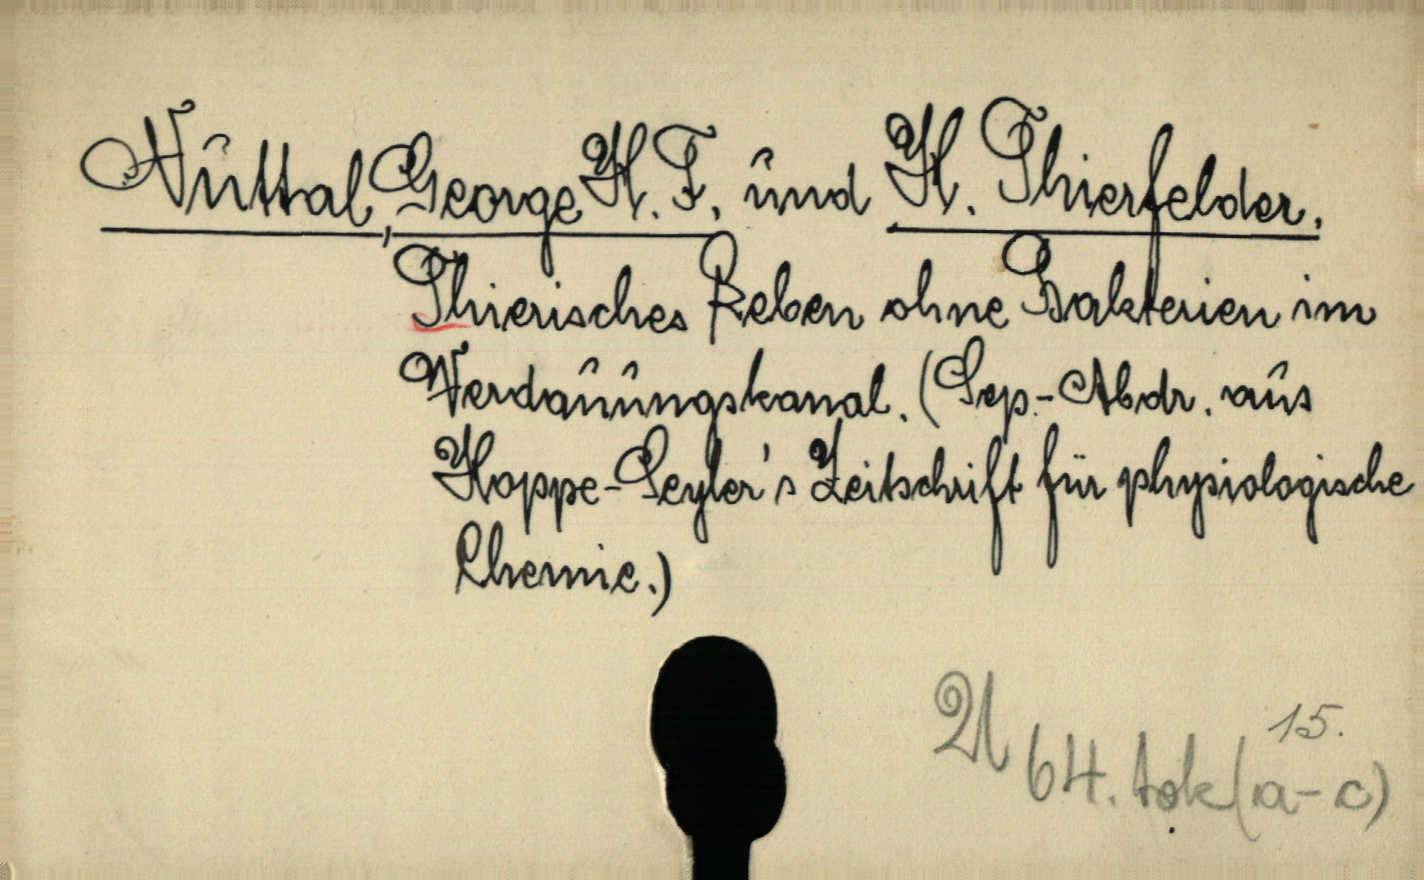 Nuttal, George H. F. und H. Thierfelder.
Thierisches Leben ohne Bakterien im
Verdauungskanal. (Sep.-Abdr. aus
Hoppe-Seyler's Zeitschrift für physiologische
Chemie.)
15.
64. tok (a-c)